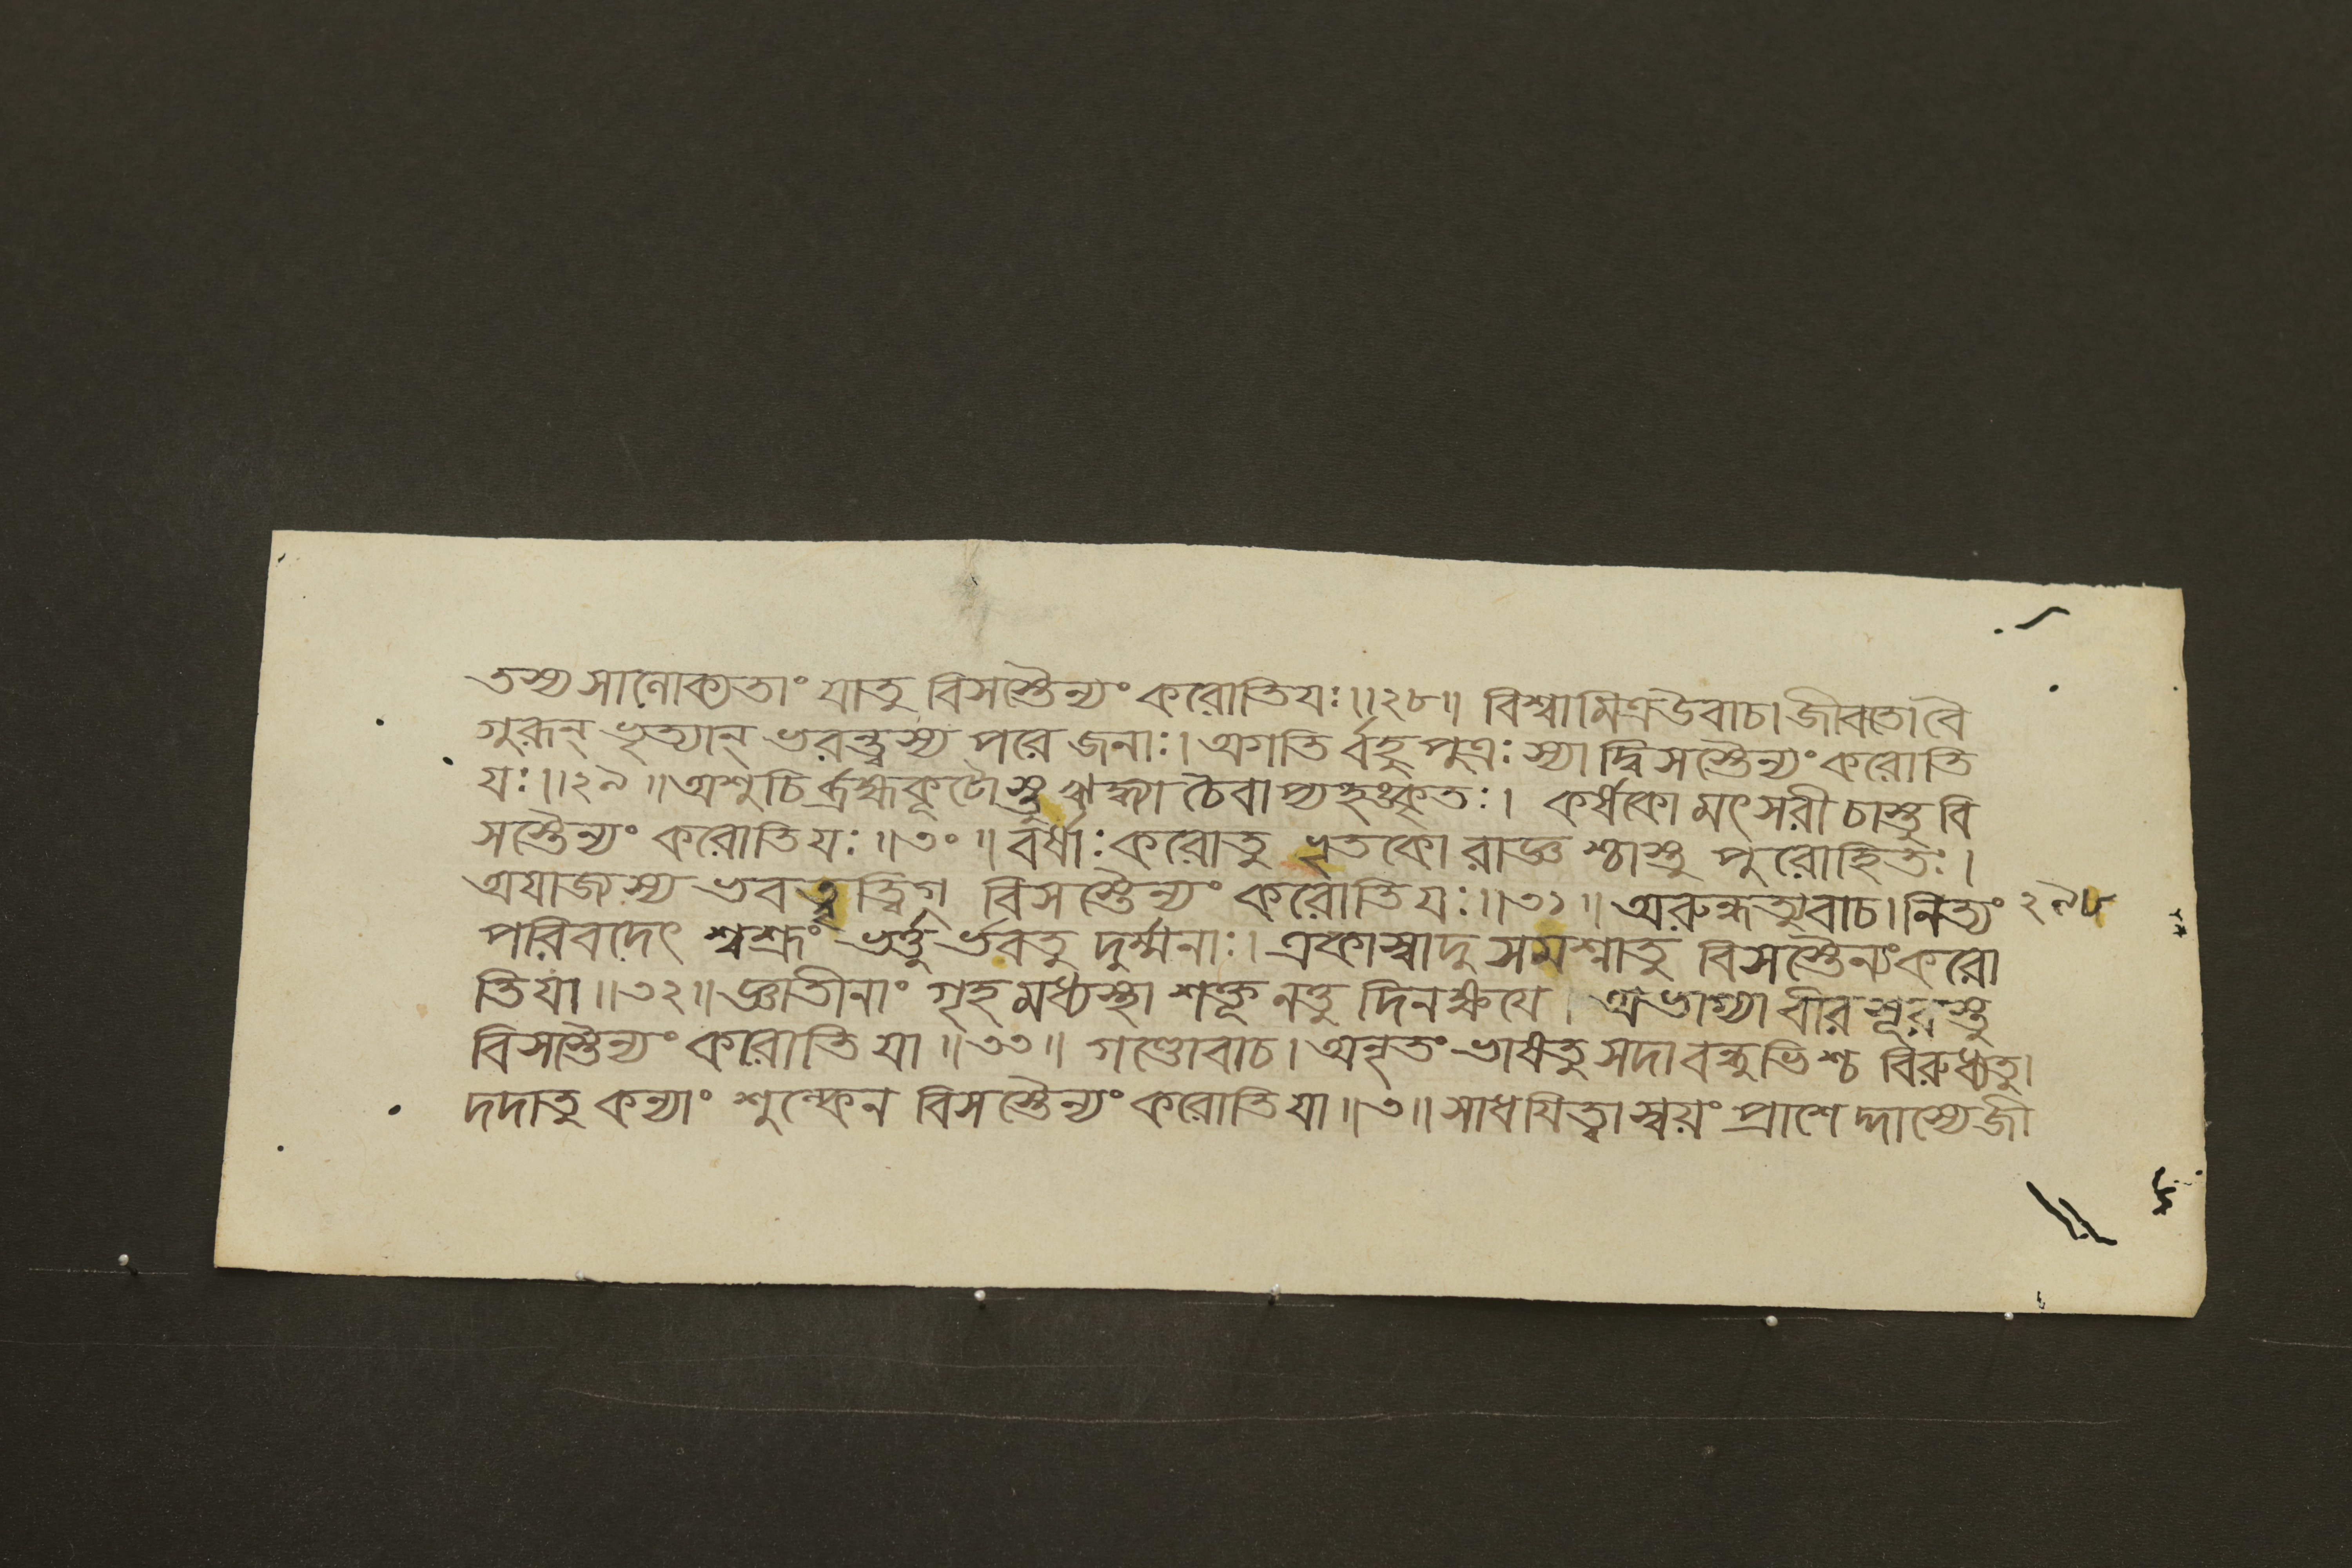 তস্য সালোক্যতাং যাতু বিসস্তৈন্যং করোতি যঃ॥২৮॥ বিশ্বামিত্রউবাচ। জীবতো বৈ
গুরূন্ ভৃত্যান্ ভরন্ত্বস্য পরে জনাঃ। অগতি র্বহু পুত্রঃ স্যা দ্বিসস্তৈন্যং করোতি
যঃ॥২৯॥ অশুচি র্ব্রহ্মকূটোস্তু ঋদ্ধ্যা চৈবাপ্যহঙ্কৃতঃ। কর্ষকো মৎসরী চাস্তু বি
সস্তৈন্যং করোতি যঃ॥৩০॥ বর্ষাঃ করোতু ভৃতকো রাজ্ঞ শ্চাস্তু পুরোহিতঃ।
অযাজস্য ভবত্বৃত্বিগ্ বিসস্তৈন্যং করোতি যঃ॥৩১॥ অরুন্ধত্যুবাচ। নিত্যং ২৯৮
পরিবদেৎ শ্বশ্রূং ভর্ত্তু র্ভবতু দুর্ম্মনাঃ। একা স্বাদু সমশ্নাতু বিসস্তৈন্যং করো
তি যা॥৩২॥ জ্ঞাতীনাং গৃহ মধ্যস্থা শক্তূনত্তু দিনক্ষযে। অভাগ্যা বীরসূরস্তু
বিসস্তৈন্যং করোতি যা॥৩৩॥ গণ্ডোবাচ। অনৃতং ভাষতু সদা বন্ধুভিশ্চ বিরুধ্যতু।
দদাতু কন্যাং শুল্কেন বিসস্তৈন্যং করোতি যা॥৩॥ সাধযিত্বা স্বয়ং প্রাশে দ্দাস্যে জী